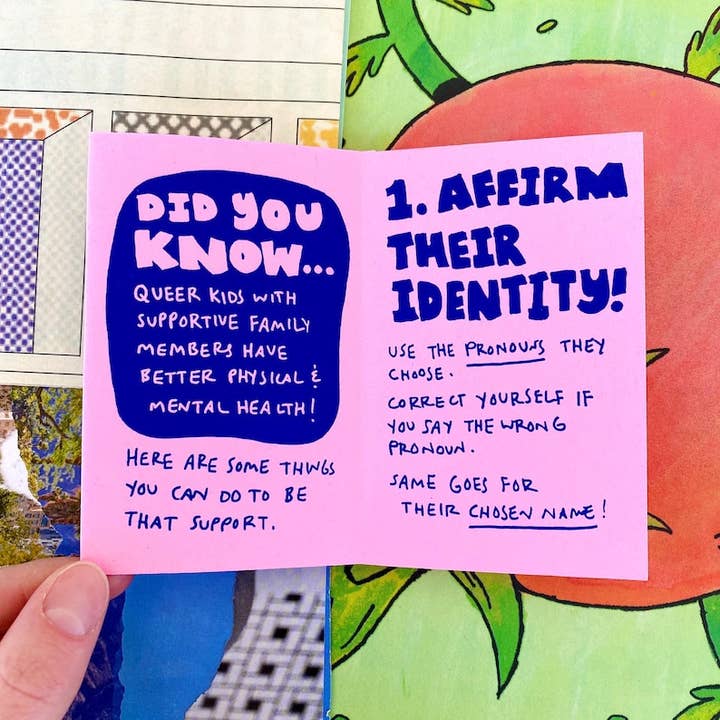 DID YOU
KNOW...
QUEER KIDS WITH
SUPPORTIVE FAMILY
MEMBERS HAVE
BETTER PHYSICAL &
MENTAL HEALTH!
HERE ARE SOME THINGS
YOU CAN DO TO BE
THAT SUPPORT.
1. AFFIRM
THEIR
IDENTITY!
USE THE PRONOUNS THEY
CHOOSE.
CORRECT YOURSELF IF
YOU SAY THE WRONG
PRONOUN.
SAME GOES FOR
THEIR CHOSEN NAME!